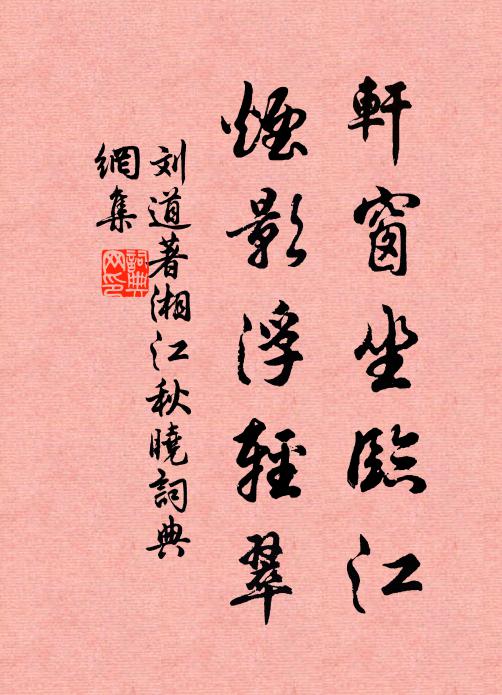 軒窗坐臨江
煙影浮輕翠
刘道著湘江秋曉詞典
網集
詞典網印